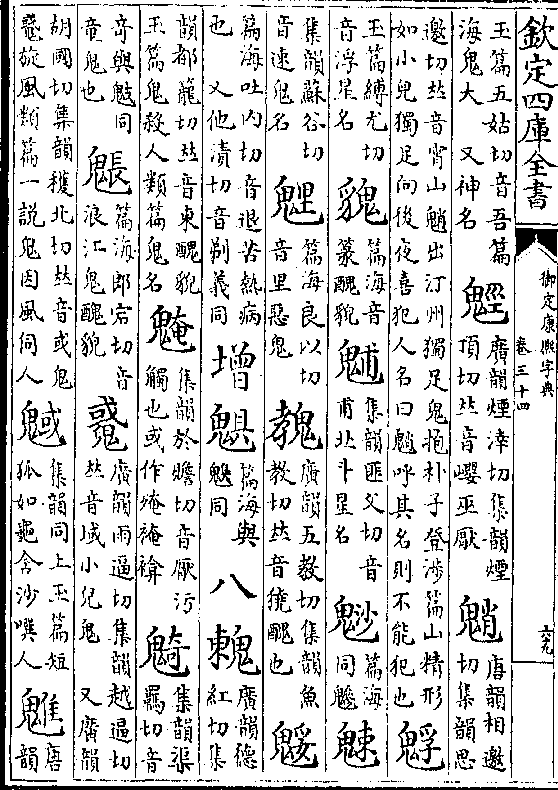 欽定四庫全書
御定康熙字典
卷三十四
六九
玉篇五姑切音吾篇海鬼大 又神名 䰢 廣韻煙涬切集韻煙頂切𠀤音巊巫厭 魈 唐韻相邀切集韻思
邀切𠀤音宵山魈出汀州獨足鬼抱朴子登涉篇山精形如小兒獨足向後夜喜犯人名曰魈呼其名則不能犯也
玉篇縛尤切音浮星名 篇海音篆醜貌 集韻匪父切音甫北斗星名 篇海同魑
集韻蘇谷切音速鬼名 篇海良以切音里惡鬼 廣韻五教切集韻魚教切𠀤音獟醜也
篇海吐内切音退苦熱病也 又他漬切音剃義同 增 䰧 篇海與魌同 八 廣韻德紅切集
韻都籠切𠀤音東醜貌玉篇鬼殺人類篇鬼名 集韻於贍切音厭污觸也或作埯裺䅖 集韻渠羈切音
奇與鬾同童鬼也 篇海郎宕切音浪江鬼醜貌 廣韻雨逼切集韻越逼切𠀤音域小兒鬼 又廣韻
胡國切集韻穫北切𠀤音或鬼𩖢旋風類篇一説鬼因風伺人 魊 集韻同上玉篇短狐如龜含沙噀人 魋 唐韻